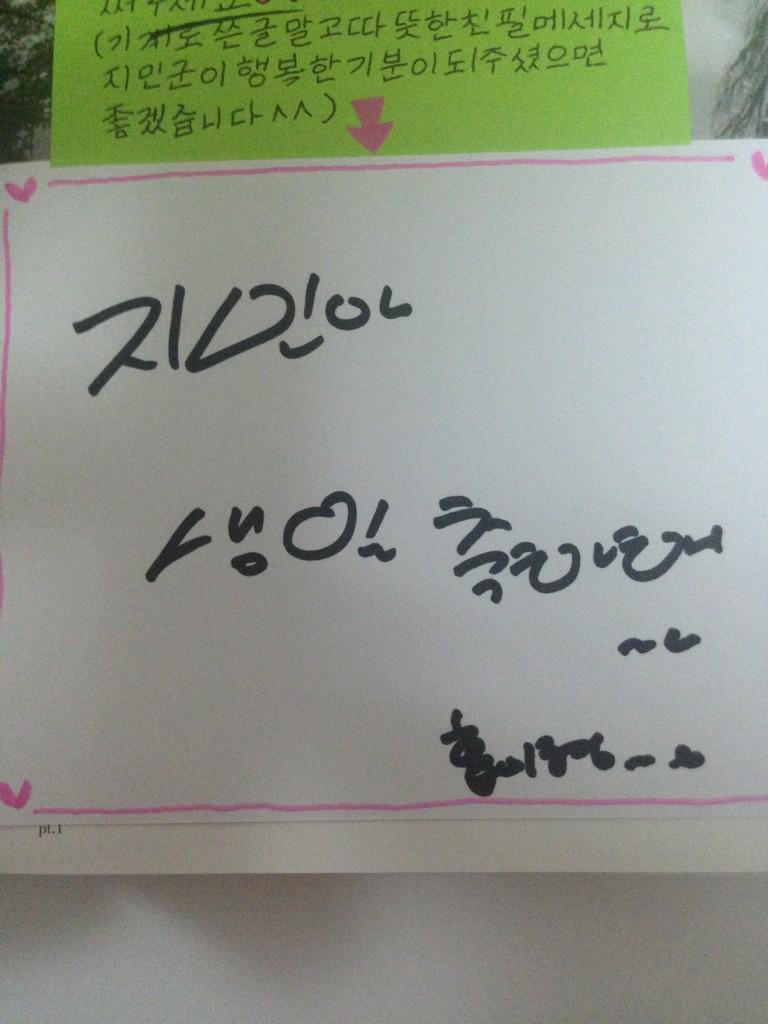 써주세요
(기계로 쓴 글 말고 따뜻한 친필메세지로
지민군이 행복한 기분이 되주셨으면
좋겠습니다^^)
지민아
생일 축하한대
~~
pt.1